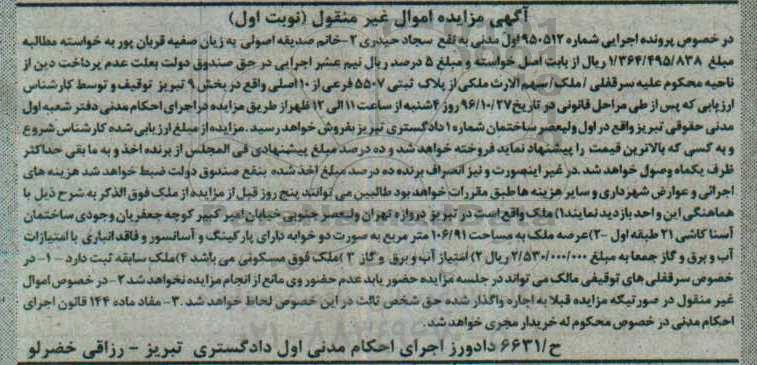 آگهی مزایده اموال غیر منقول (نوبت اول)
در خصوص پرونده اجرایی شماره ۹۵۰۵۱۲ اول مدنی به نفع سجاد حیدری ۲-خانم صدیقه اصولی به زیان صفیه قربان پور به خواسته مطالبه
مبلغ ۱/۳۶۴/۴۹۵/۸۳۸ ریال از بابت اصل خواسته و مبلغ ۵ درصد ریال نیم عشر اجرایی در حق صندوق دولت بعلت عدم پرداخت دین از
ناحیه محکوم علیه سرقفلی / ملک/ سهم الارث ملکی از پلاک ثبتی ۵۵۰۷ فرعی از ۱۰ اصلی واقع در بخش ۹ تبریز توقیف و توسط کارشناس
ارزیابی که پس از طی مراحل قانونی در تاریخ ۹۶/۱۰/۲۷ روز ۴شنبه از ساعت ۱۱ الی ۱۲ ظهر از طریق مزایده در اجرای احکام مدنی دفتر شعبه اول
مدنی حقوقی تبریز واقع در اول ولیعصر ساختمان شماره ۱ دادگستری تبریز بفروش خواهد رسید .مزایده از مبلغ ارزیابی شده کارشناس شروع
و به کسی که بالاترین قیمت را پیشنهاد نماید فروخته خواهد شد و ده درصد مبلغ پیشنهادی فی المجلس از برنده اخذ و به ما بقی حداکثر
ظرف یکماه وصول خواهد شد .در غیر اینصورت و نیز انصراف برنده ده درصد مبلغ اخذ شده بنفع صندوق دولت ضبط خواهد شد هزینه های
اجرائی و عوارض شهرداری و سایر هزینه ها طبق مقررات خواهد بود طالبین می توانند پنج روز قبل از مزایده از ملک فوق الذکر به شرح ذیل با
هماهنگی این واحد بازدید نمایند۱) ملک واقع است در تبریز دروازه تهران ولیعصر جنوبی خیابان امیر کبیر کوچه جعفریان وجودی ساختمان
آسنا کاشی ۲۱ طبقه اول -۲)عرصه ملک به مساحت ۱۰۶/۹۱ متر مربع به صورت دو خوابه دارای پارکینگ و آسانسور و فاقد انباری با امتیازات
آب و برق و گاز جمعا به مبلغ ۲/۵۳۰/۰۰۰/۰۰۰ ریال ۲) امتیاز آب و برق و گاز ۳ )ملک فوق مسکونی می باشد ۴)ملک سابقه ثبت دارد - ۱- در
خصوص سرقفلی های توقیفی مالک می تواند در جلسه مزایده حضور یابد عدم حضور وی مانع از انجام مزایده نخواهد شد ۲- در خصوص اموال
غیر منقول در صورتیکه مزایده قبلا به اجاره واگذار شده حق شخص ثالث در این خصوص لحاظ خواهد شد .۳- مفاد ماده ۱۴۴ قانون اجرای
احکام مدنی در خصوص محکوم له خریدار مجری خواهد شد.
ح/۶۶۳۱ دادورز اجرای احکام مدنی اول دادگستری تبریز - رزاقی خضرلو